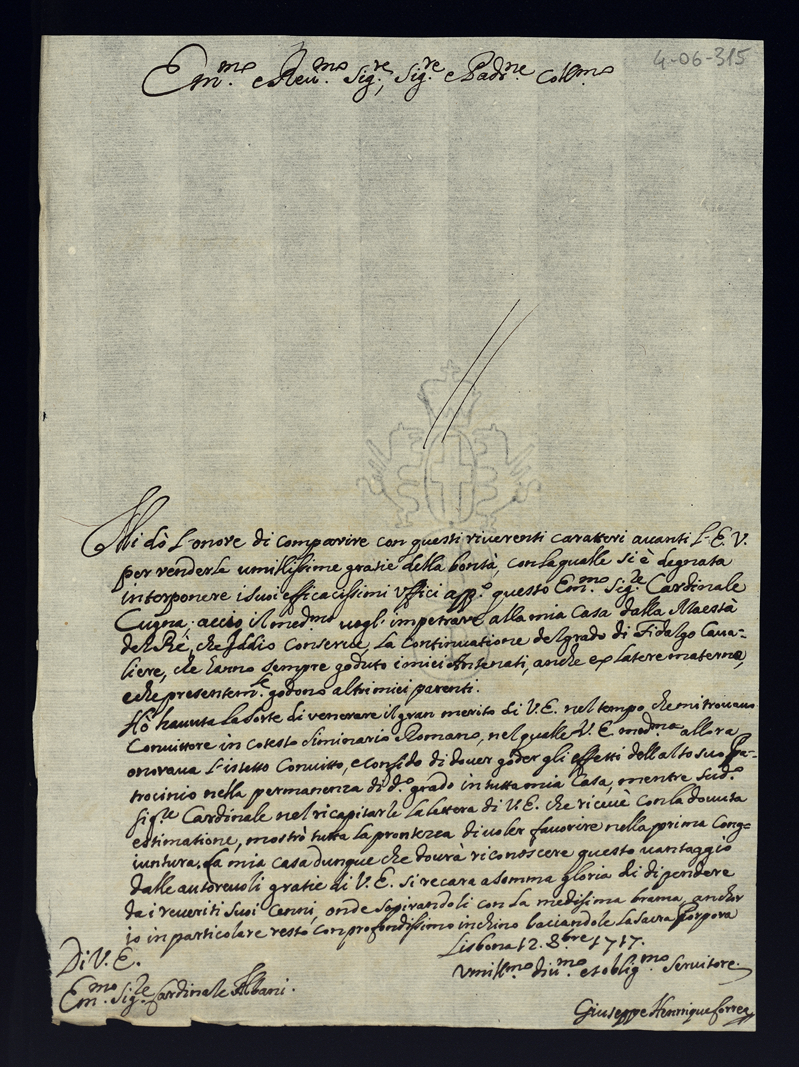 4-06-315
Em.mo e Reu.mo Sig.re, Sig.re e Padr.ne Coll.mo
Mi dò l'onore di comparire con questi riuerenti caratteri auanti l'E. V.
per renderle umilissime gratie della bontà, con la qualle si è degnata
interporre i suoi efficacissimi uffici app.o questo Em.mo Sig.re Cardinale
Cugna: acciò il med.mo uogl' impetrare alla mia Casa dalla Maestà
del Rè, che Iddio Conserue, la Continuatione del grado di Fidalgo Caua-
liere, che hanno sempre goduto i miei Antenati, anche ex latere materno,
e che presentem.te godono altri miei parenti.
Hò hauuta la sorte di venerare il gran merito di V. E. nel tempo che mi trouauo
Conuittore in cotesto Siminario Romano, nel qualle V. E. med.ma allora
onoraua l'istetto Conuitto, e confido di douer goder gli effetti dell'alto suo Pa-
trocinio nella permanenza di d.o grado in tutta mia Casa, mentre sud.o
Sig.re Cardinale nel ricapitarle la lettera di V. E. che riceuè con la douuta
estimatione, mostrò tutta la prontezza di uoler fauorire nella prima Cong-
iuntura. La mia casa dunque che dourà riconoscere questo uantaggio
dalle autoreuoli gratie di V. E. si recara a somma gloria di dipendere
da i reueriti suoi Cenni, onde sospirandoli con la medissima brama, anchor
io in particolare resto con profondissimo inchino baciandole la Sacra Porpora
Lisbona 12. 8.bre 1717.
Di V. E.
Vmill.mo diu.mo et oblig.mo Seruitore
Em.mo Sig.re Cardinale Albani.
Giuseppe Henrique